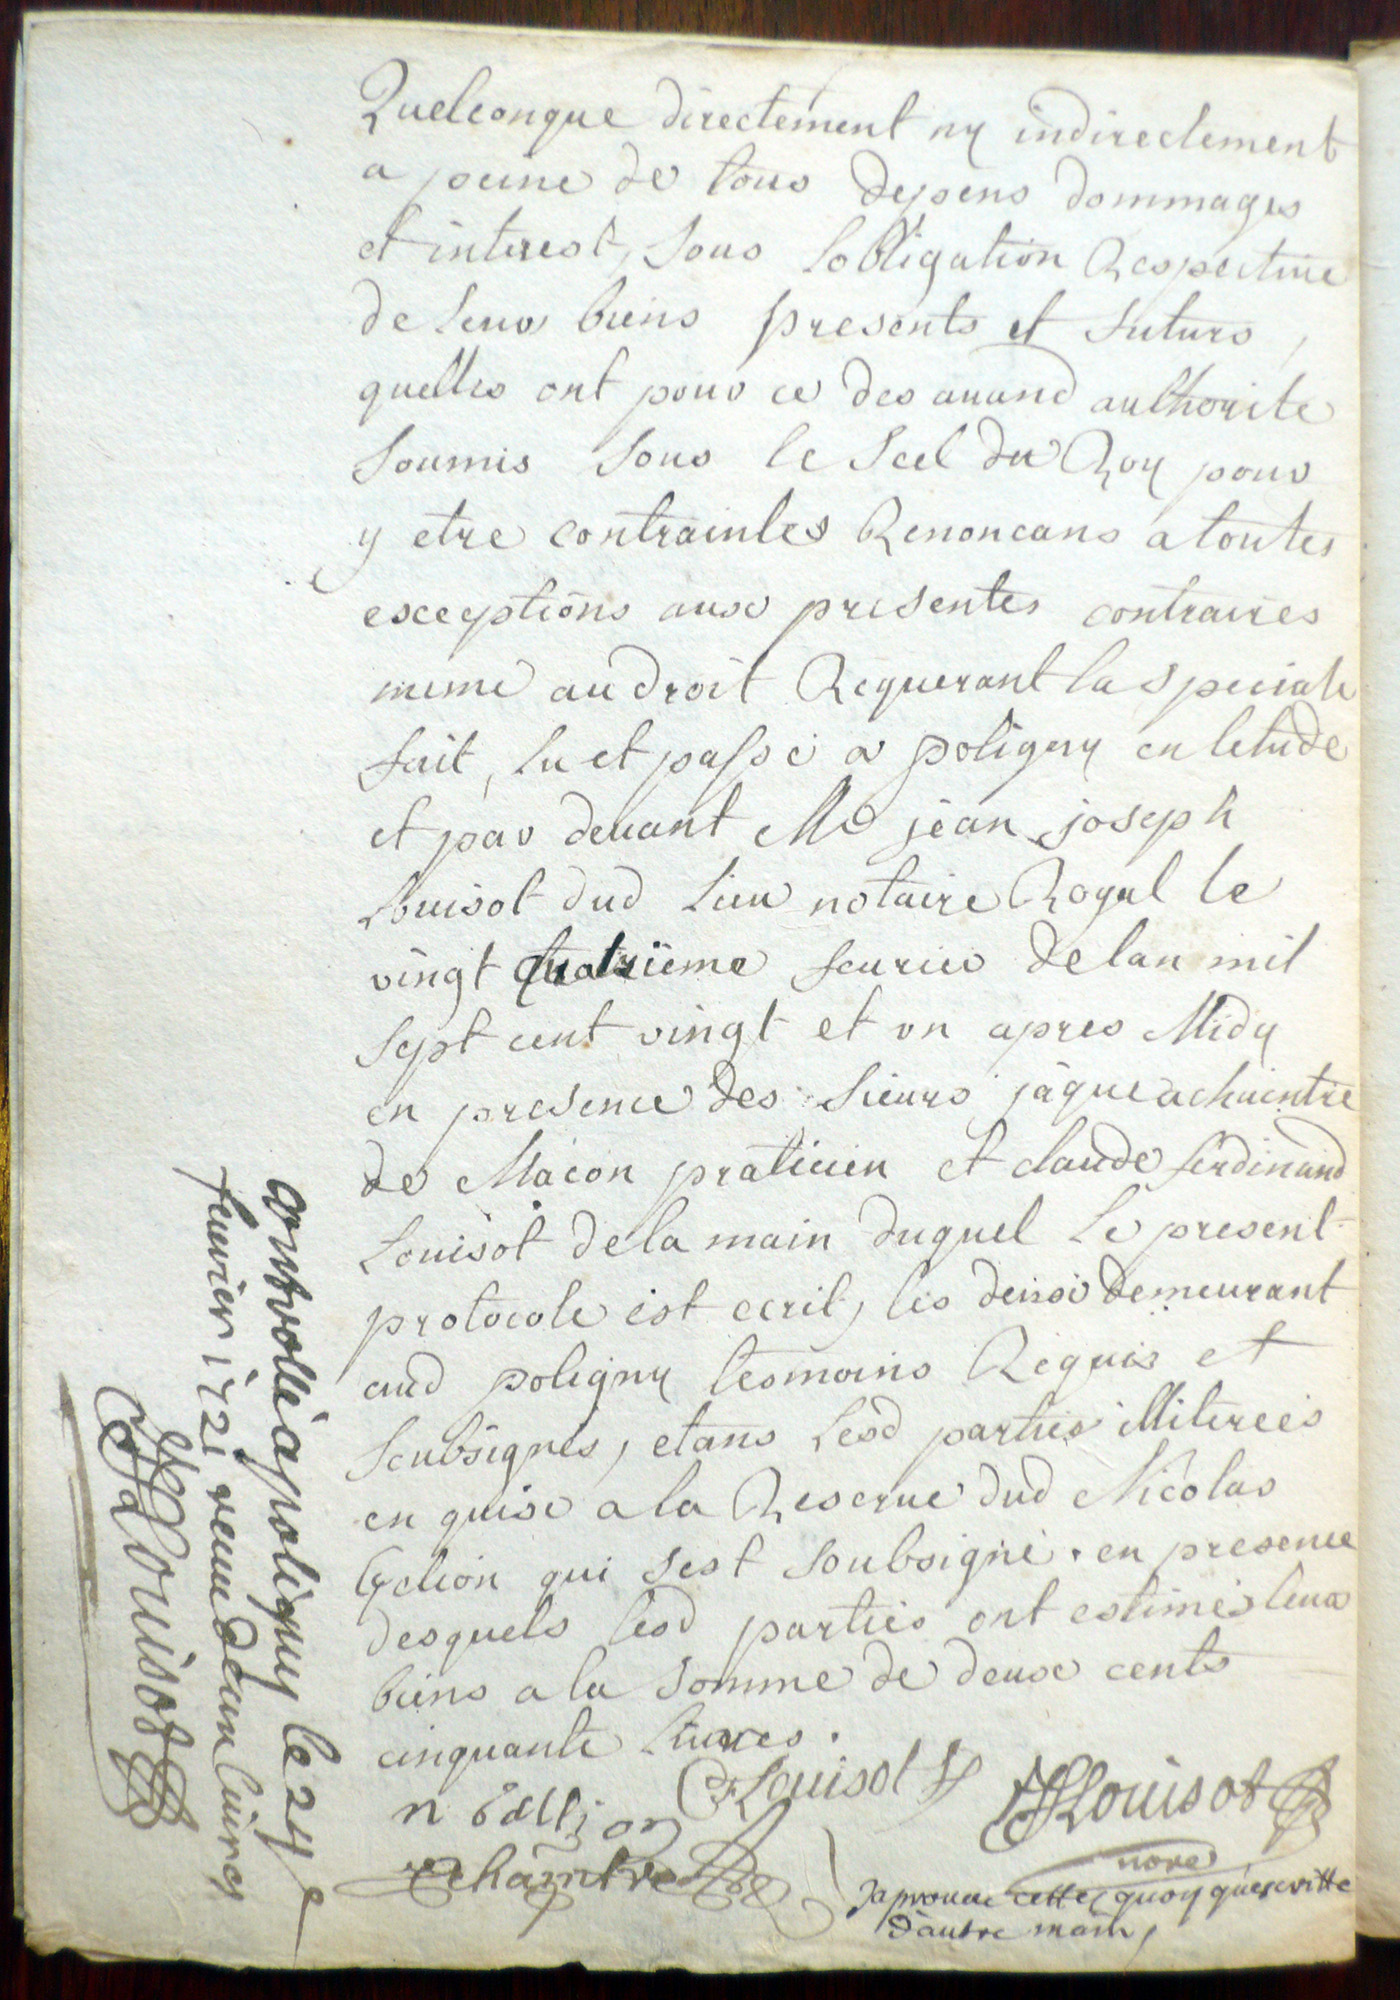 Quelconque directement ny indirectement
a peine de tous depens dommages
et interest, sous lobligation Respective
de leur biens presents et futurs,
quelles ont pour ce des auand authorite
soumis sous le scel du Roy pour
y etre contraintes Renoncans a toutes
exceptions aux presentes contraires
meme au droit Requerant la speciale
fait, lu et passé a poligny en letude
et par deuant Me jean joseph
Louisot dud lieu notaire Royal le
vingt quatrieme feurier de lan mil
sept cent vingt et un apres Midy
en presence des sieurs jaque achaintre
de Macon praticien et claude ferdinand
Louisot de la main duquel le present
protocole est ecrit, les deux demeurant
aud poligny tesmoins Requis et
soubsignes, etans lesd parties illiterées
en quise a la Reserue dud Nicolas
qui sest soubsigné. en presence
desquels lesd parties ont estimés leur
biens a la somme de deux cents
cinquante liures.
CF Louisot JJ Louisot
n
achaintre
note
Japrouue cette quoy quescritte
dautre main,
Controllé a poligny le 24
feurier 1721 receu
JJ Louisot